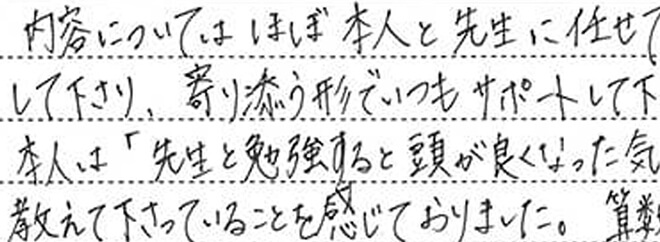 内容についてはほぼ本人と先生に任せて
して下さり、寄り添う形でいつもサポートして下
本人は「先生と勉強すると頭が良くなった気
教えて下さっていることを感じておりました。算数